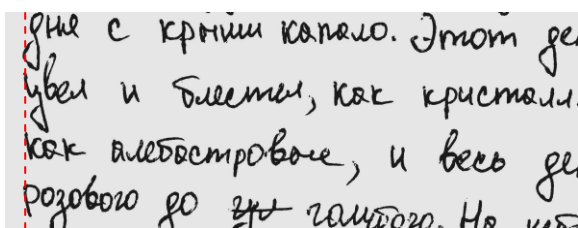 дня с крыши капало. Этот де
цвел и блестел, как кристалл.
как алебастровые, и весь де
розового до голубого. На